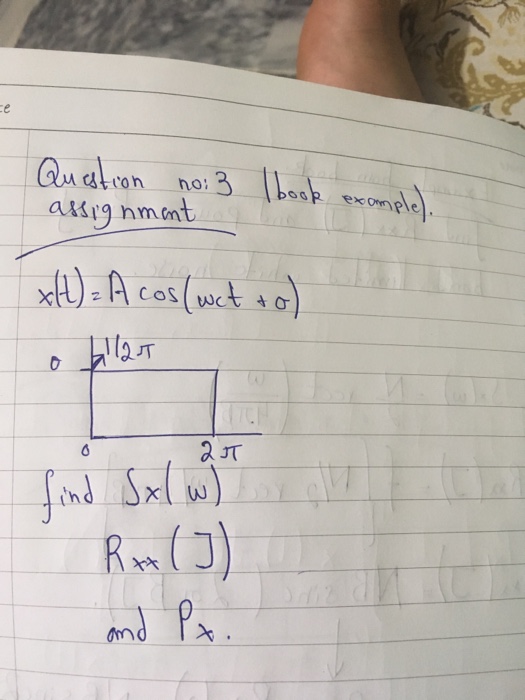 Question no: 3 (book example).
assignment
x(t) = A cos(wct + σ)
1/2π
0
0 2π
find Sx(w)
Rxx(J)
and Px.